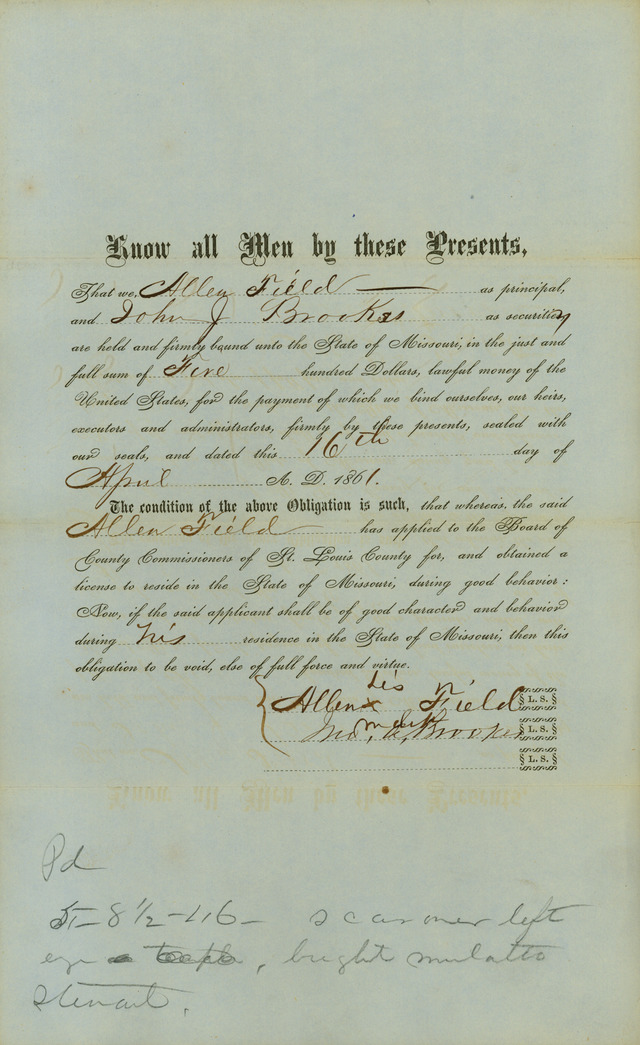 Know all Men by these Presents,
That we, Allen Field as principal,
and John J Brookes as security
are held and firmly bound unto the State of Missouri, in the just and
full sum of Five hundred Dollars, lawful money of the
United States, for the payment of which we bind ourselves, our heirs,
executors and administrators, firmly by these presents, sealed with
our seals, and dated this 16th day of
April A. D. 1861.
The condition of the above Obligation is such, that whereas, the said
Allen Field has applied to the Board of
County Commissioners of St. Louis County for, and obtained a
license to reside in the State of Missouri, during good behavior:
Now, if the said applicant shall be of good character and behavior
during his residence in the State of Missouri, then this
obligation to be void, else of full force and virtue.
his
Allen x Field L. S.
mark
Jno. Brookes L. S.
L. S.
Pd
5-8 1/2-26- scar over left
eye, bright mulatto
Stewart.